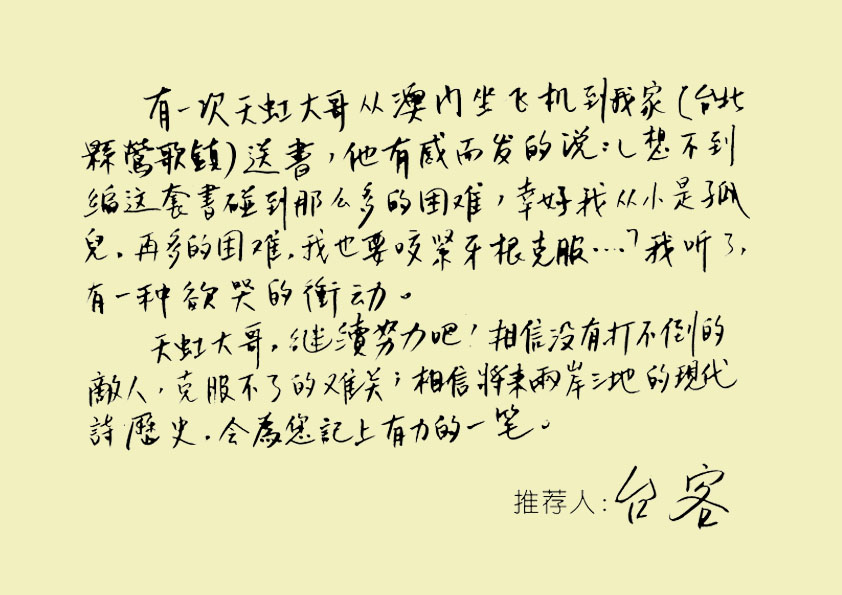 有一次天虹大哥从澳门坐飞机到我家(台北
縣鶯歌鎮)送書，他有感而发的说：「想不到
编这套書碰到那么多的困难，幸好我从小是孤
兒，再多的困难，我也要咬紧牙根克服……」我听了，
有一种欲哭的衝动。
天虹大哥，继續努力吧！相信没有打不倒的
敵人，克服不了的难关；相信將来兩岸三地的現代
詩歷史，会為您記上有力的一笔。
推荐人：台客